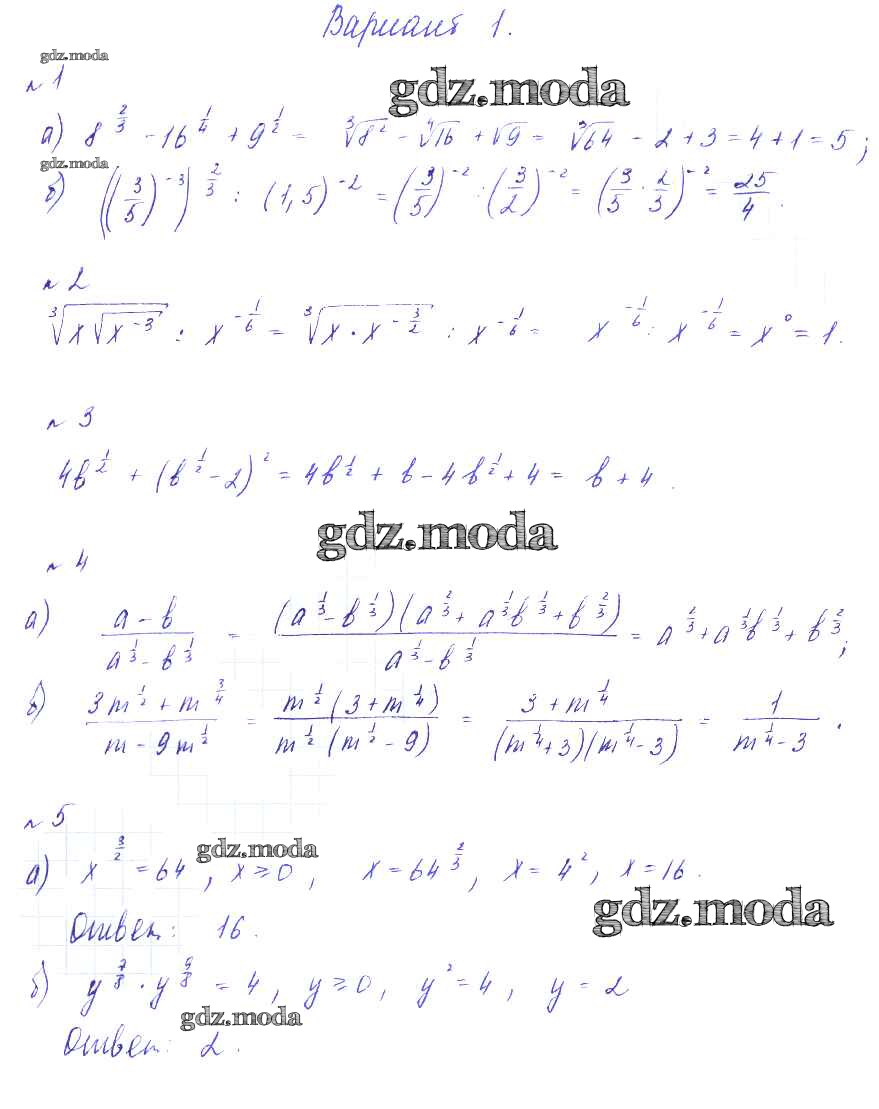 Вариант 1.
gdz.moda
№ 1
gdz.moda
а) 8^(2/3) - 16^(1/4) + 9^(1/2) = ∛(8²) - ∜16 + √9 = ∛64 - 2 + 3 = 4 + 1 = 5;
gdz.moda
б) ((3/5)^(-3))^(2/3) : (1,5)^(-2) = (3/5)^(-2) : (3/2)^(-2) = (3/5 · 2/3)^(-2) = 25/4.
№ 2
∛(x√(x^(-3))) : x^(-1/6) = ∛(x · x^(-3/2)) : x^(-1/6) = x^(-1/6) : x^(-1/6) = x^0 = 1.
№ 3
4b^(1/2) + (b^(1/2) - 2)² = 4b^(1/2) + b - 4b^(1/2) + 4 = b + 4.
gdz.moda
№ 4
а) (a - b)/(a^(1/3) - b^(1/3)) = ((a^(1/3) - b^(1/3))(a^(2/3) + a^(1/3)b^(1/3) + b^(2/3)))/(a^(1/3) - b^(1/3)) = a^(2/3) + a^(1/3)b^(1/3) + b^(2/3);
б) (3m^(1/2) + m^(3/4))/(m - 9m^(1/2)) = (m^(1/2)(3 + m^(1/4)))/(m^(1/2)(m^(1/2) - 9)) = (3 + m^(1/4))/((m^(1/4) + 3)(m^(1/4) - 3)) = 1/(m^(1/4) - 3).
№ 5
gdz.moda
а) x^(3/2) = 64, x ≥ 0, x = 64^(2/3), x = 4², x = 16.
gdz.moda
Ответ: 16.
б) y^(7/8) · y^(9/8) = 4, y ≥ 0, y² = 4, y = 2
gdz.moda
Ответ: 2.